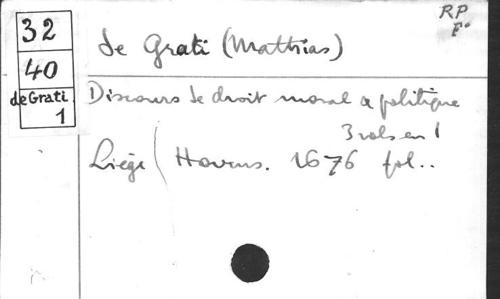 32
40
de Grati
1
RP
F°
de Grati (Matthias)
Discours de droit moral & politique
3 vols en 1
Liége Hovius. 1676 fol..